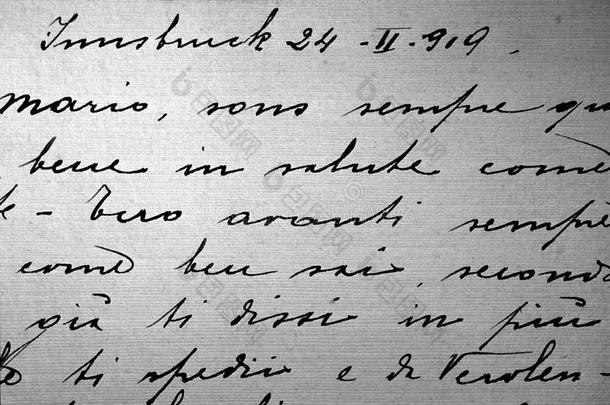 Innsbruck 24 - II - 919.
Mario, sono sempre qu
bene in salute comè
te - Tiro avanti sempre
comè ben sai, second
già ti dissi in più
ti spedii e da Verolen-